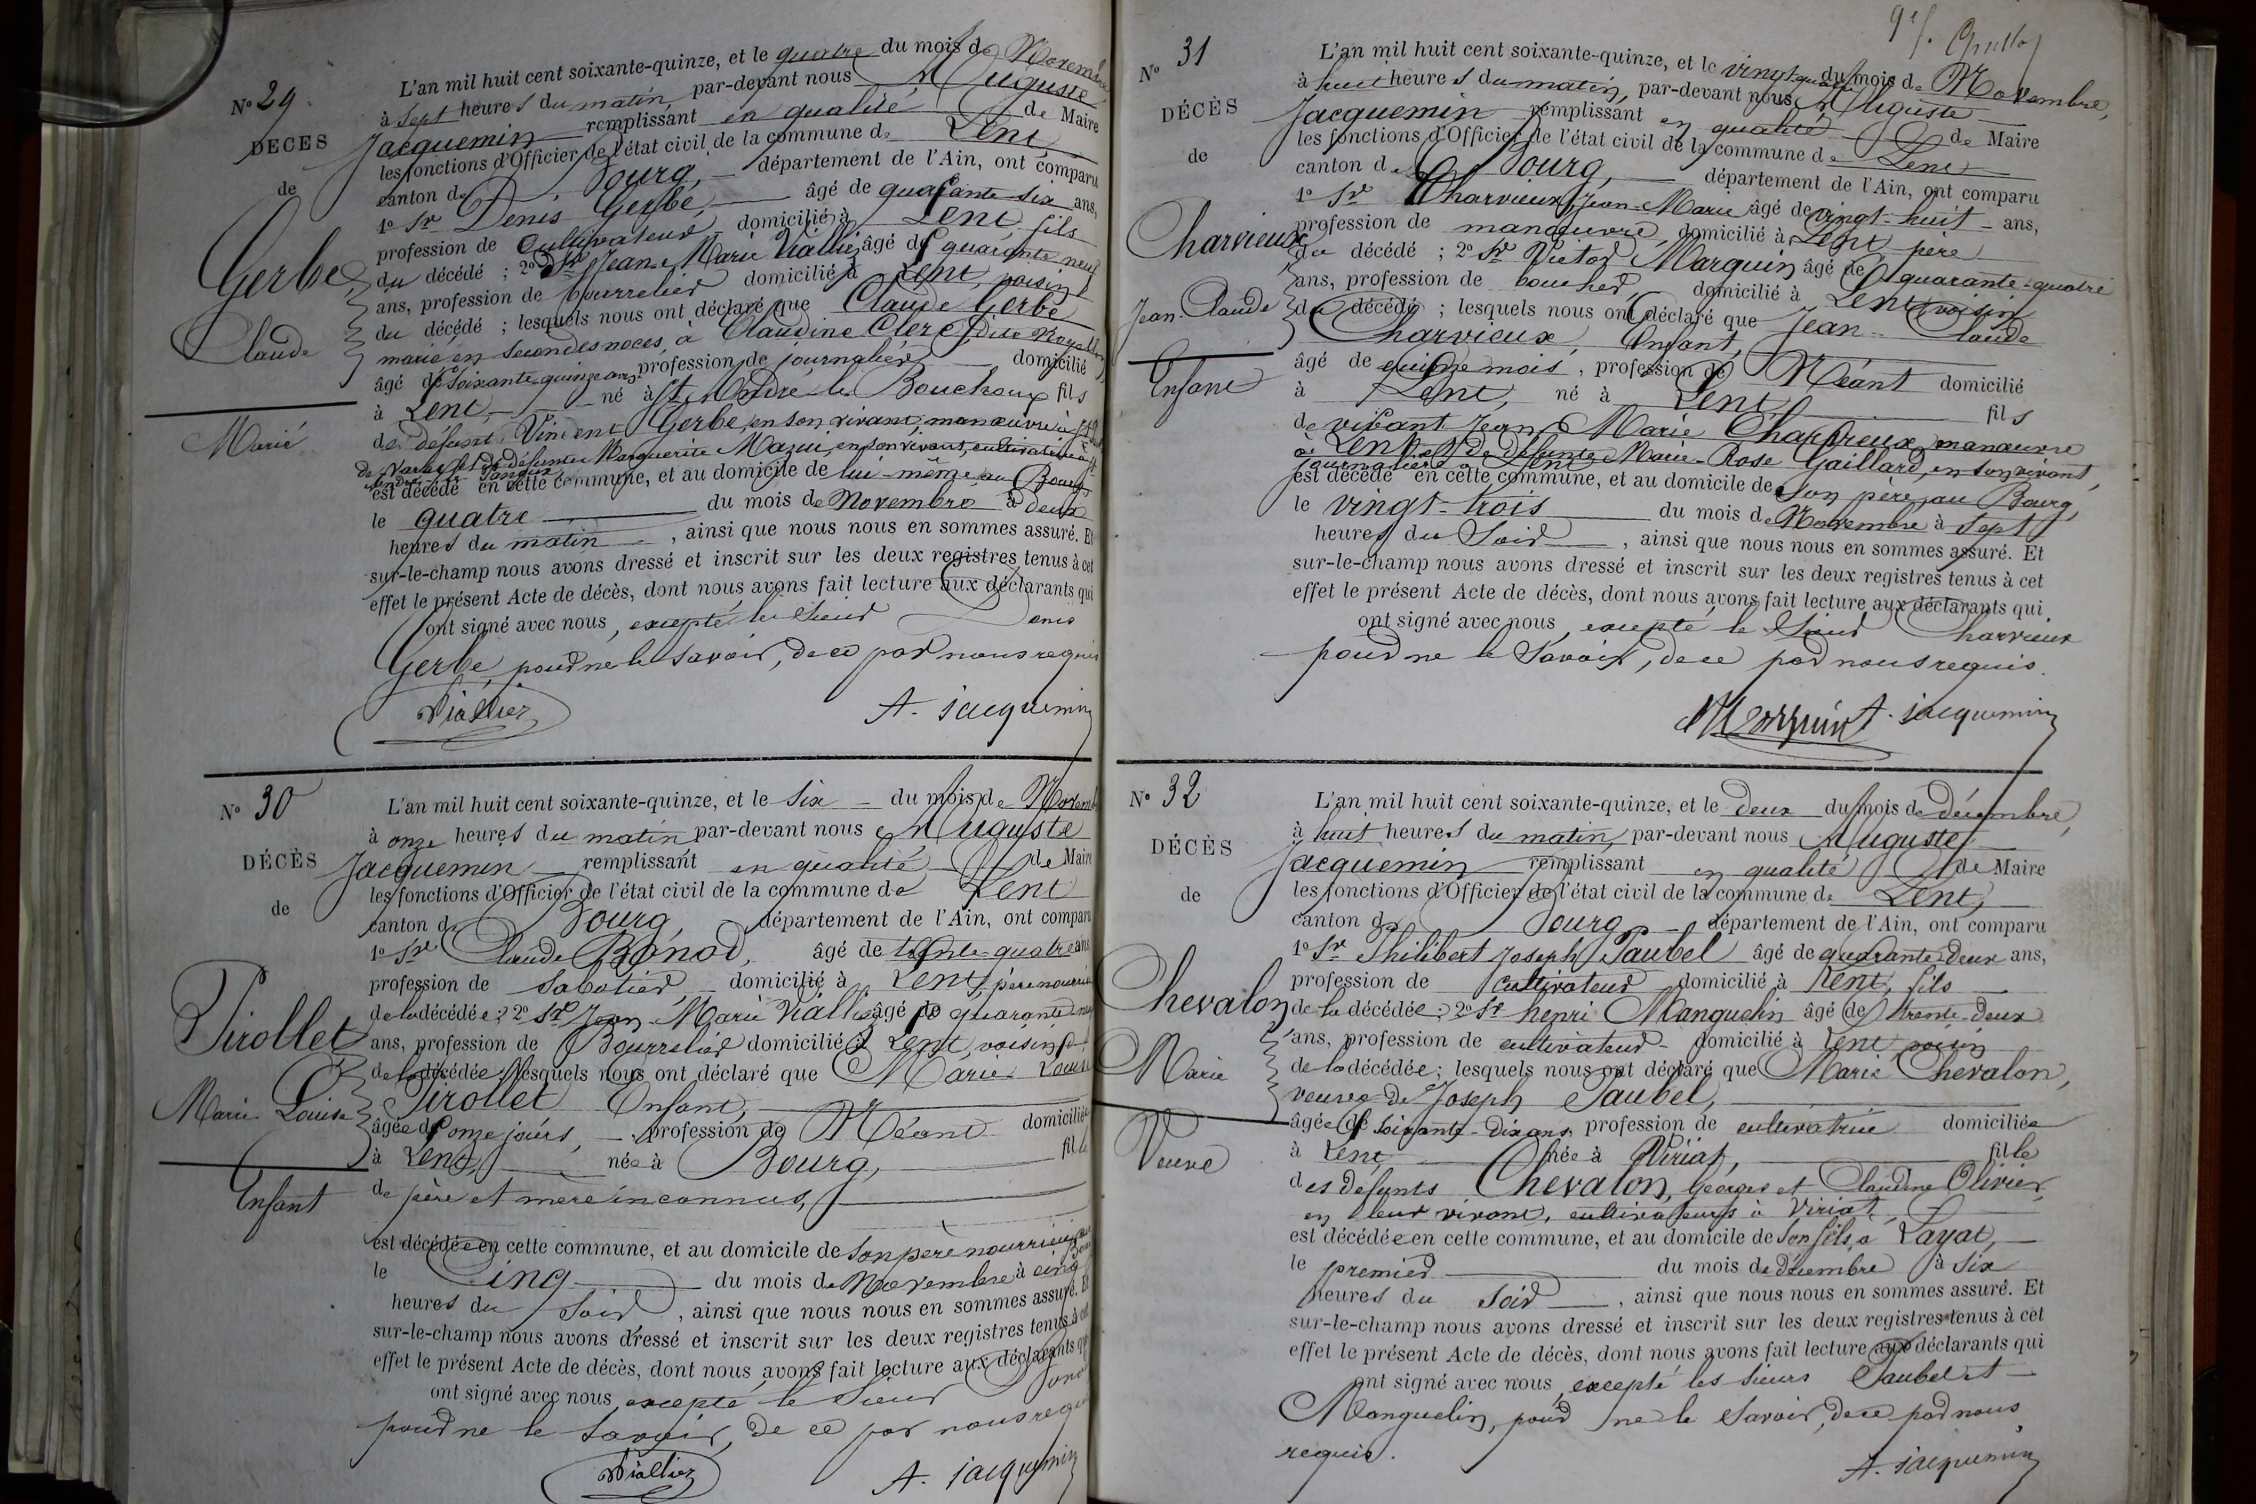 N° 29
DÉCÈS
de
Gerbe
Claude
Marié
L'an mil huit cent soixante-quinze, et le quatre du mois de Novembre
à sept heures du matin, par-devant nous Auguste
Jacquemin remplissant en qualité de Maire
les fonctions d'Officier de l'état civil de la commune de Lent,
canton de Bourg, département de l'Ain, ont comparu
1° Sr Denis Gerbe, âgé de quarante six ans,
profession de cultivateur domicilié à Lent, fils
du décédé ; 2° Sr Jean-Marie Viallier âgé de quarante neuf
ans, profession de bourrelier domicilié à Lent, voisin
du décédé ; lesquels nous ont déclaré que Claude Gerbe
marié en secondes noces, à Claudine Clerc, dite
âgé de soixante-quinze ans profession de journalier domicilié
à Lent, né à St André-le-Bouchoux fils
de défunt Vincent Gerbe, en son vivant manœuvre à St
et de défunte Marguerite Mazuu, en son vivant, cultivatrice à St
est décédé en cette commune, et au domicile de lui-même au Bourg
le quatre du mois de Novembre à deux
heures du matin, ainsi que nous nous en sommes assuré. Et
sur-le-champ nous avons dressé et inscrit sur les deux registres tenus à cet
effet le présent Acte de décès, dont nous avons fait lecture aux déclarants qui
ont signé avec nous, excepté le Sieur Denis
Gerbe, pour ne le savoir, de ce par nous requis
Viallier A. Jacquemin
N° 30
DÉCÈS
de
Pirollet
Marie Louise
Enfant
L'an mil huit cent soixante-quinze, et le six du mois de Novemb
à onze heures du matin par-devant nous Auguste
Jacquemin remplissant en qualité de Maire
les fonctions d'Officier de l'état civil de la commune de Lent
canton de Bourg département de l'Ain, ont comparu
1° Sr Claude Bonod, âgé de trente-quatre ans
profession de sabotier domicilié à Lent, père nourricier
de la décédée ; 2° Sr Jean-Marie Viallier âgé de quarante neuf
ans, profession de Bourrelier domicilié à Lent, voisin
de la décédée ; lesquels nous ont déclaré que Marie Louise
Pirollet Enfant,
âgée de onze jours, profession de Néant domiciliée
à Lent, née à Bourg, fille
de père et mère inconnus,
est décédée en cette commune, et au domicile de son père nourricier, au Bourg
le Cinq du mois de Novembre à cinq
heures du Soir, ainsi que nous nous en sommes assuré. Et
sur-le-champ nous avons dressé et inscrit sur les deux registres tenus à cet
effet le présent Acte de décès, dont nous avons fait lecture aux déclarants qui
ont signé avec nous excepté le Sieur Bonod
pour ne le savoir, de ce par nous requis
Viallier A. Jacquemin
N° 31
DÉCÈS
de
Charvieux
Jean-Claude
Enfant
L'an mil huit cent soixante-quinze, et le vingt-quatre du mois de Novembre,
à huit heures du matin, par-devant nous Auguste
Jacquemin remplissant en qualité de Maire
les fonctions d'Officier de l'état civil de la commune de Lent
canton de Bourg, département de l'Ain, ont comparu
1° Sr Charvieux Jean-Marie âgé de vingt-huit ans,
profession de manœuvre, domicilié à Lent, père
du décédé ; 2° Sr Victor Marquin âgé de quarante-quatre
ans, profession de boucher, domicilié à Lent, voisin
du décédé ; lesquels nous ont déclaré que Jean-Claude
Charvieux, Enfant,
âgé de quinze mois, profession de Néant domicilié
à Lent, né à Lent, fils
de vivant Jean-Marie Charvieux, manœuvre
à Lent et de défunte Marie-Rose Gaillard, en son vivant,
journalière à Lent
est décédé en cette commune, et au domicile de son père, au Bourg,
le vingt-trois du mois de Novembre à sept
heures du Soir, ainsi que nous nous en sommes assuré. Et
sur-le-champ nous avons dressé et inscrit sur les deux registres tenus à cet
effet le présent Acte de décès, dont nous avons fait lecture aux déclarants qui
ont signé avec nous excepté le Sieur Charvieux
pour ne le Savoir, de ce par nous requis.
Marquin A. Jacquemin
N° 32
DÉCÈS
de
Chevalon
Marie
Veuve
L'an mil huit cent soixante-quinze, et le deux du mois de décembre,
à huit heures du matin, par-devant nous Auguste
Jacquemin remplissant en qualité de Maire
les fonctions d'Officier de l'état civil de la commune de Lent,
canton de Bourg département de l'Ain, ont comparu
1° Sr Philibert Joseph Paubel âgé de quarante-deux ans,
profession de cultivateur domicilié à Lent, fils
de la décédée ; 2° Sr henri Manguelin âgé de trente-deux
ans, profession de cultivateur domicilié à Lent voisin
de la décédée ; lesquels nous ont déclaré que Marie Chevalon,
veuve de Joseph Paubel,
âgée de soixante-dix ans profession de cultivatrice domiciliée
à Lent, née à Viriat, fille
des défunts Chevalon, Georges et Claudine Olivier,
en leur vivant, cultivateurs à Viriat,
est décédée en cette commune, et au domicile de son fils, à Layat,
le premier du mois de décembre à six
heures du soir, ainsi que nous nous en sommes assuré. Et
sur-le-champ nous avons dressé et inscrit sur les deux registres tenus à cet
effet le présent Acte de décès, dont nous avons fait lecture aux déclarants qui
ont signé avec nous, excepté les sieurs Paubel et
Manguelin, pour ne le Savoir, de ce par nous
requis.
A. Jacquemin